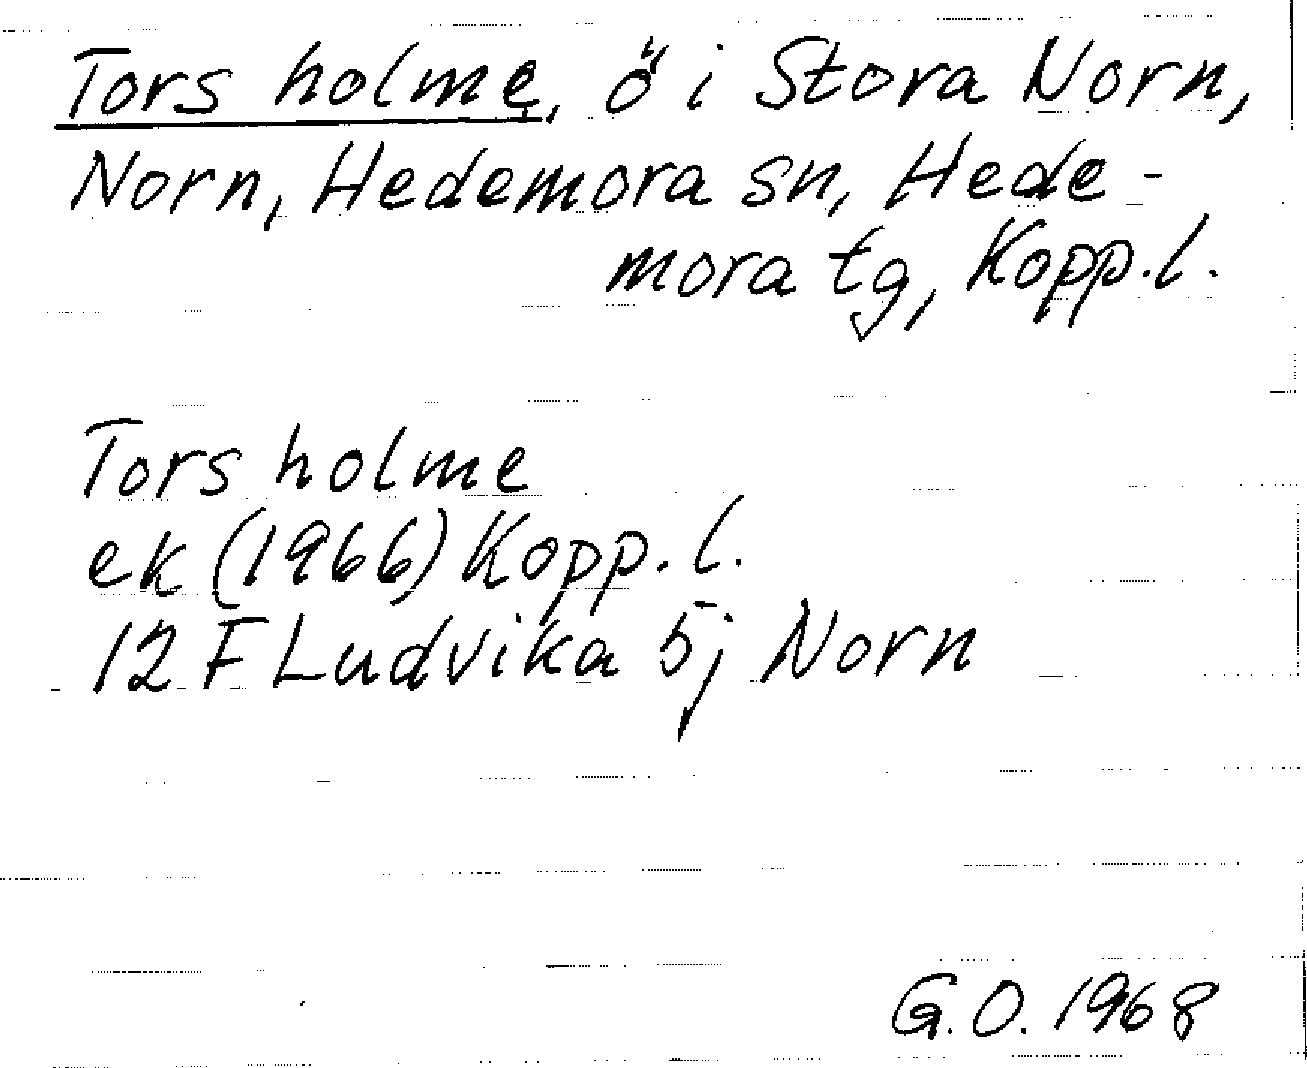 Tors holme, ö i Stora Norn,
Norn, Hedemora sn, Hede-
mora tg, Kopp.l.
Tors holme
ek (1966) Kopp.l.
12 F Ludvika 5j Norn
G.O. 1968